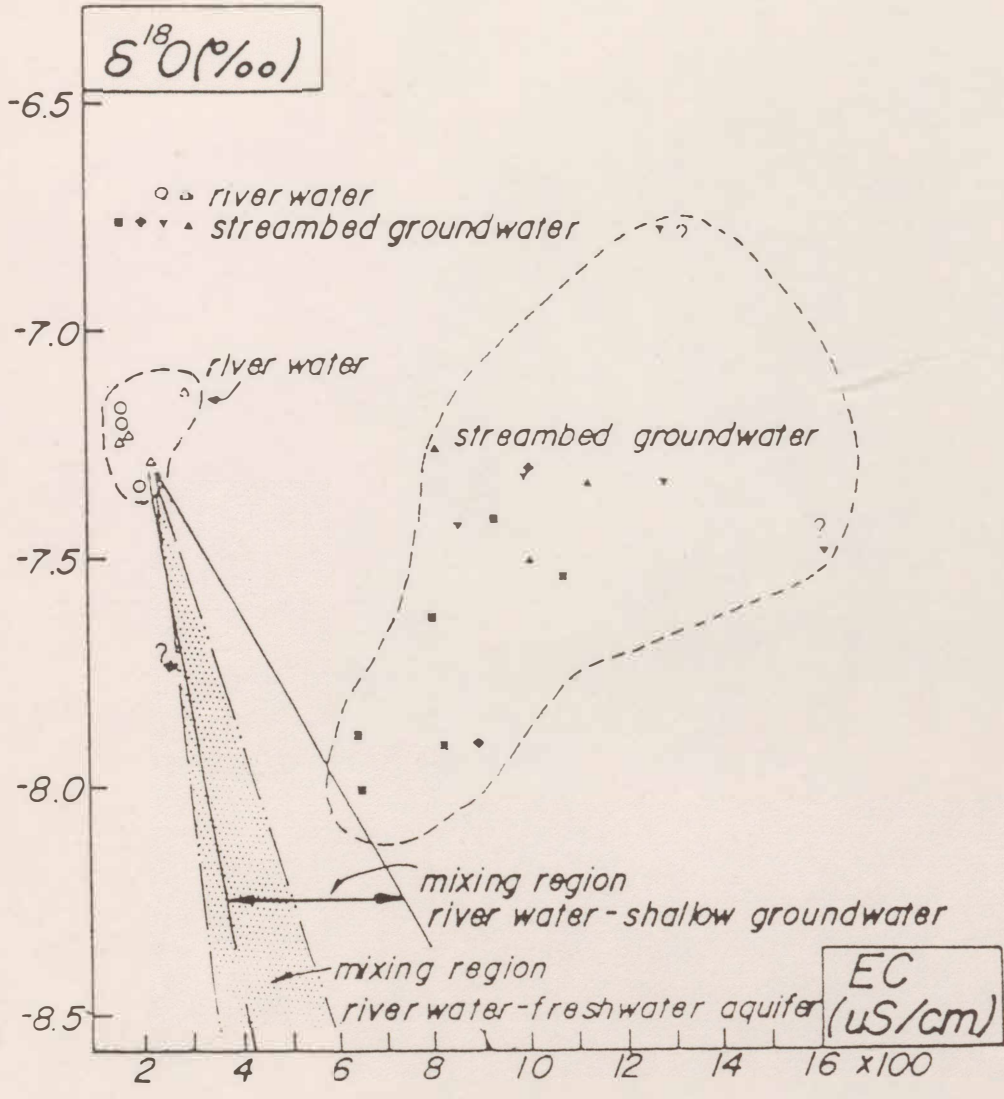 δ¹⁸O(‰)
-6.5
river water
streambed groundwater
?
-7.0
river water
streambed groundwater
?
-7.5
?
-8.0
mixing region
river water-shallow groundwater
mixing region
river water-freshwater aquifer
EC
(uS/cm)
-8.5
2 4 6 8 10 12 14 16 x100